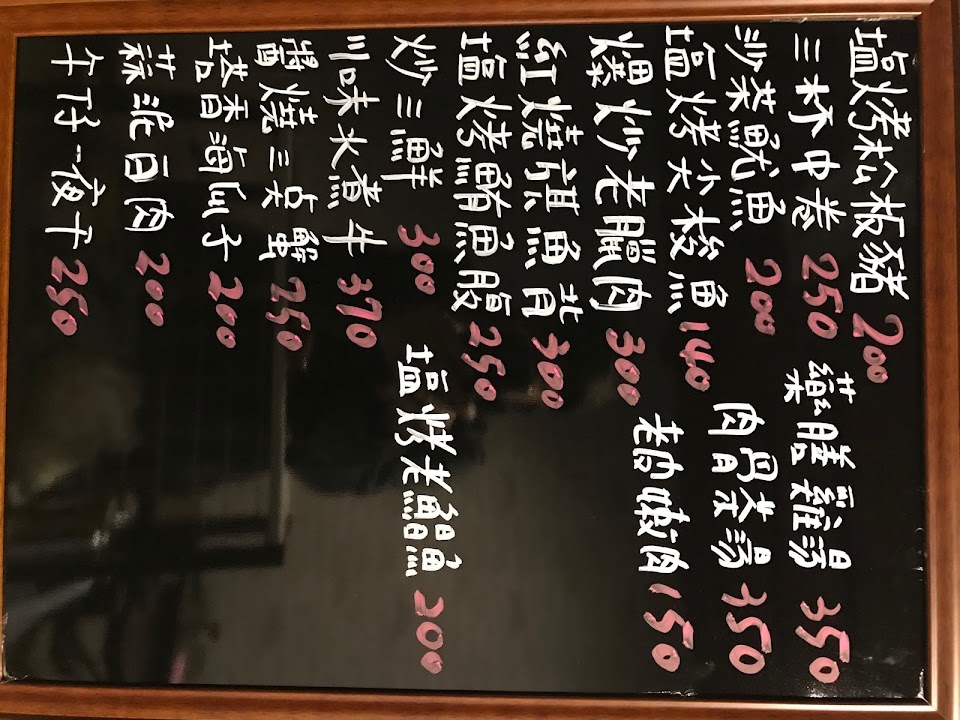 塩烤松板豬 200
三杯中卷 250 藥膳雞湯 350
沙茶魷魚 200 肉骨茶湯 350
塩烤尖梭魚 140
爆炒老臘肉 300 老皮嫩肉 150
紅燒旗魚背 300
塩烤鮪魚腹 250
炒三鮮 300 塩烤 200
川味水煮牛 370
醬燒三点蟹 250
塔香海瓜子 200
蒜泥白肉 200
午仔一夜干 250